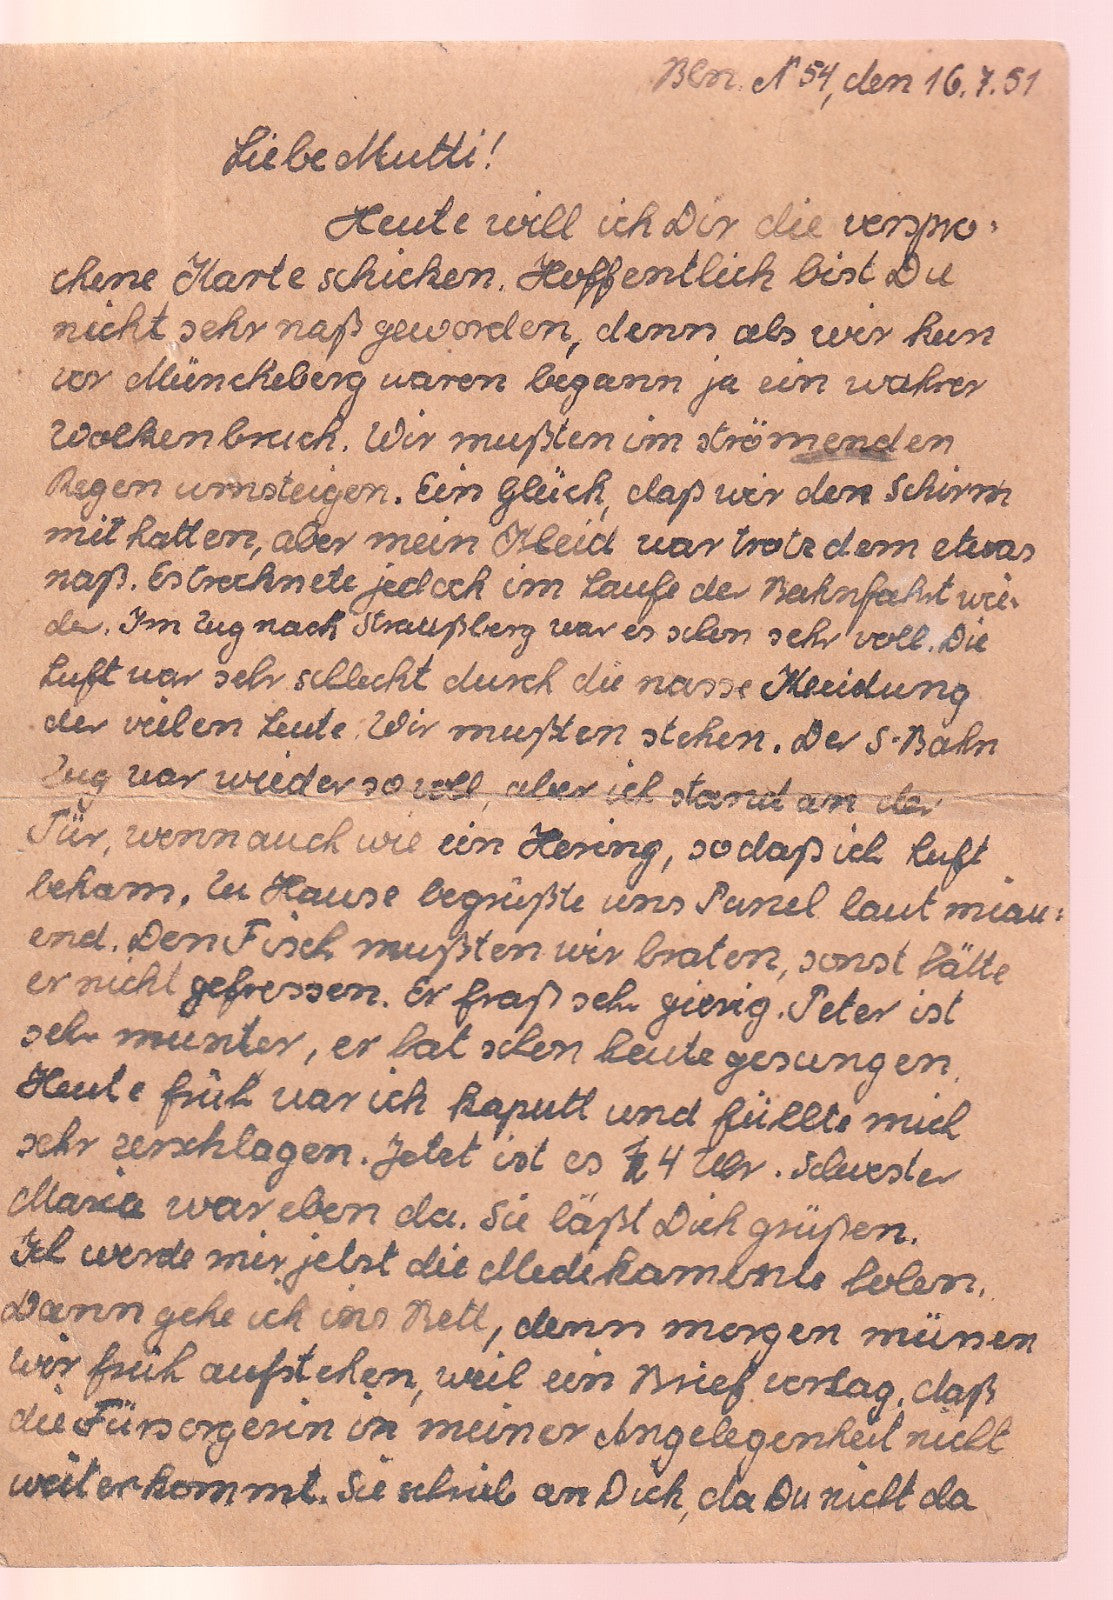 Bln. N 54, den 16.7.51
Liebe Mutti!
Heute will ich Dir die verspro-
chene Karte schicken. Hoffentlich bist Du
nicht sehr naß geworden, denn als wir kurz
vor Müncheberg waren begann ja ein wahrer
Wolkenbruch. Wir mußten im strömenden
Regen umsteigen. Ein Glück, daß wir den Schirm
mit hatten, aber mein Kleid war trotzdem etwas
naß. Es trocknete jedoch im Laufe der Bahnfahrt wie-
der. Im Zug nach Straußberg war es schon sehr voll. Die
Luft war sehr schlecht durch die nasse Kleidung
der veilen Leute. Wir mußten stehen. Der S-Bahn
Zug war wieder so voll, aber ich stand an der
Tür, wenn auch wie ein Hering, sodaß ich Luft
bekam. Zu Hause begrüßte uns laut miau-
end. Den Fisch mußten wir braten, sonst hätte
er nicht gefressen. Er fraß sehr gierig. Peter ist
sehr munter, er hat schon heute gesungen.
Heute früh war ich kaputt und fühlte mich
sehr zerschlagen. Jetzt ist es 4 Uhr. Schwester
Maria war eben da. Sie läßt Dich grüßen.
Ich werde mir jetzt die Medikamente holen.
Dann gehe ich ins Bett, denn morgen müssen
wir früh aufstehen, weil ein Brief vorlag, daß
die Fürsorgerin in meiner Angelegenheit nicht
weiterkommt. Sie schrieb an Dich, da Du nicht da